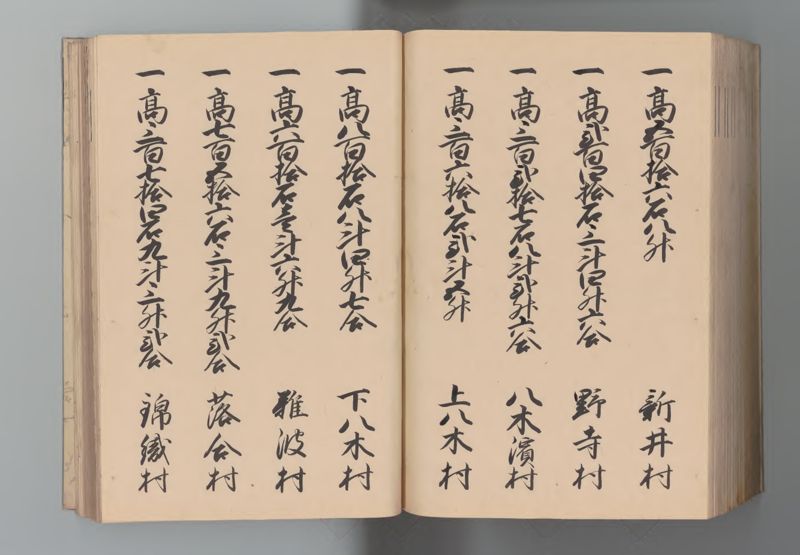 一 高五百拾六石八升 新井村
一 高弐百四拾石三斗四升六合 野寺村
一 高三百弐拾七石八斗弐升六合 八木濱村
一 高三百六拾八石弐斗五升 上八木村
一 高八百拾石八斗四升七合 下八木村
一 高六百拾石壱斗六升九合 難波村
一 高七百五拾六石三斗九升弐合 落合村
一 高三百七拾四石九斗三升弐合 錦織村